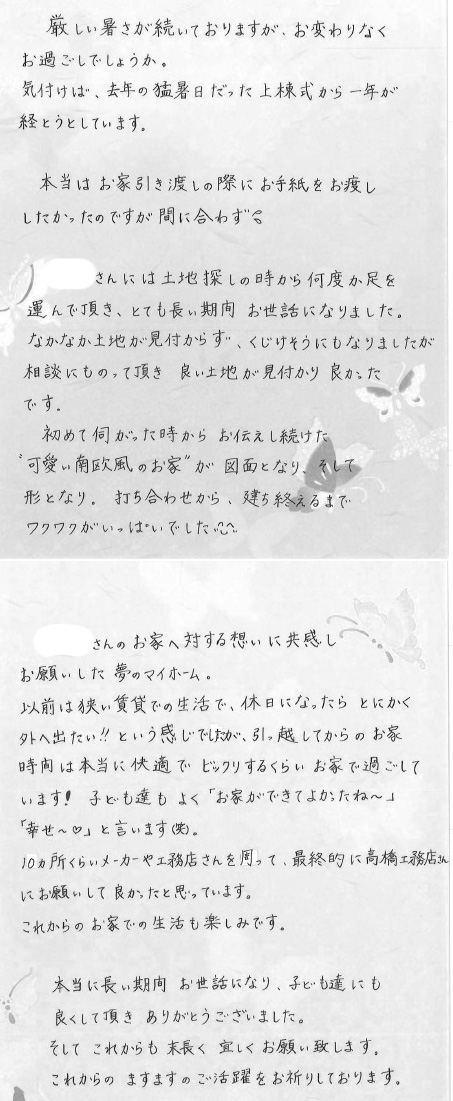 厳しい暑さが続いておりますが、お変わりなく
お過ごしでしょうか。
気付けば、去年の猛暑日だった上棟式から一年が
経とうとしています。
本当はお家引き渡しの際にお手紙をお渡し
したかったのですが間に合わず
さんには土地探しの時から何度か足を
運んで頂き、とても長い期間 お世話になりました。
なかなか土地が見付からず、くじけそうにもなりましたが
相談にものって頂き 良い土地が見付かり 良かった
です。
初めて伺がった時から お伝えし続けた
“可愛い南欧風のお家”が 図面となり、そして
形となり。 打ち合わせから、建ち終えるまで
ワクワクがいっぱいでした
さんのお家へ対する想いに共感し
お願いした 夢のマイホーム。
以前は狭い賃貸での生活で、休日になったら とにかく
外へ出たい!! という感じでしたが、引っ越してからのお家
時間は本当に快適で ビックリするくらい お家で過ごして
います! 子ども達も よく「お家ができてよかったね〜」
「幸せ〜♡」と言います(笑)。
10ヵ所くらいメーカーや工務店さんを周って、最終的に高橋工務店さん
にお願いして 良かったと思っています。
これからのお家での生活も楽しみです。
本当に長い期間 お世話になり、子ども達にも
良くして頂き ありがとうございました。
そして これからも 末長く 宜しくお願い致します。
これからの ますますの ご活躍をお祈りしております。